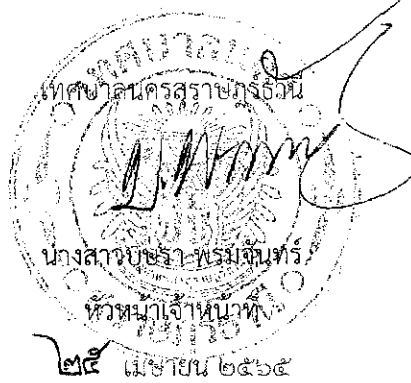 เทศบาลนครสุราษฎร์ธานี
นางสาวบุษรา พรมจันทร์
หัวหน้าเจ้าหน้าที่
๒๕ เมษายน ๒๕๖๕